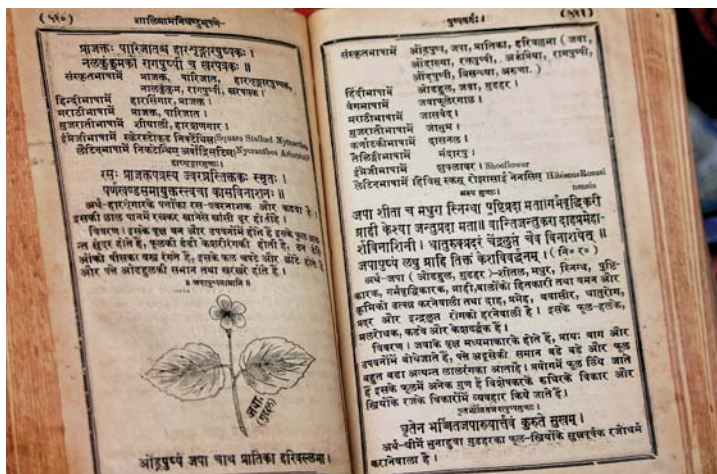 (५९०) शालिग्रामनिघण्टुभूषणे-
प्राजक्तः पारिजातश्च हारशृङ्गारपुष्पकः ।
नालकुंकुमको रागपुष्पी च खरपत्रकः ॥
संस्कृतभाषामें प्राजक्त, पारिजात, हारशृङ्गारपुष्पक,
नालकुंकुम, रागपुष्पी, खरपत्रक ।
हिन्दीभाषामें हारसिंगार, प्राजक्त ।
मराठीभाषामें प्राजक्त, पारिजात ।
गुजरातीभाषामें शीयाली, हारशणगार ।
इंग्रेजीभाषामें स्केरस्टोकड निक्टेंथिस् Square Stalked Nyctanthes
लैटिनभाषामें निकटेन्थिस् Nycranthes
रसः प्राजक्तपत्रस्य ज्वरघ्नस्तिक्तकः स्मृतः ।
पर्णखण्डसमायुक्तस्त्वचा कासविनाशनः ॥
अर्थ-हारशृंगारके पत्तोंका रस-ज्वरनाशक और कडवा है ।
इसकी छाल पानमें रखकर खानेसे खांसी दूर होतीहै ।
विवरण । इसके वृक्ष वन और उपवनोंमें होते हैं इसके फूल
सुंदर होते हैं, फूलकी डंडी केशरीरंगकी होती है, उन
ओंको पीसकर वस्त्र रंगते हैं, इसके फल चपटे और छोटे होते हैं
और पत्ते ओंडहुलकी समान तथा खरखरे होते हैं ।
जवा.
(गुडहल)
ओंड्रपुष्पं जपा चाथ प्रातिका हरिवल्लभा ।
पुष्पवर्गः । (५९१)
संस्कृतभाषामें ओंड्रपुष्प, जवा, प्रातिका, हरिवल्लभा (जवा,
रक्तपुष्पी, रागपुष्पी,
ओंड्रपुष्पी, त्रिसन्ध्या, अरुणा.)
हिंदीभाषामें ओंडहुल, जवा, गुडहर ।
वंगभाषामें जवाफूलेरगाछ ।
मराठीभाषामें जासवंद ।
गुजरातीभाषामें जासुम ।
कर्णाटकीभाषामें दासनल ।
तैलिङ्गीभाषामें मंदारपु ।
इंग्रेजीभाषामें शुफ्लावर । Shoeflower
लैटिनभाषामें हिविस् स्कस् रोझासाई नेनसिस् Hibiscus Rosasi
nensis
जपा शीता च मधुरा स्निग्धा पुष्टिप्रदा मता॥गर्भवृद्धिकरी
ग्राही केश्या जन्तुप्रदा मता॥ वान्तिजन्तुकरा दाहप्रमेहा-
र्शविनाशिनी । धातुरुक्प्रदरं चेंद्रलुप्तं चैव विनाशयेत् ॥
जपापुष्पं लघु ग्राहि तिक्तं केशविवर्द्धनम् ।(नि० र०)
अर्थ-जपा (ओंडहुल, गुडहर)-शीतल, मधुर, स्निग्ध, पुष्टि-
कारक, गर्भवृद्धिकारक, ग्राही,बालोंको हितकारी तथा वमन और
कृमिको उत्पन्न करनेवाली तथा दाह, प्रमेह, बवासीर, धातुरोग,
प्रदर और इन्द्रलुप्त रोगको हरनेवाली है । इसके फूल-हलके,
मलरोधक, कडवे और केशवर्द्धक हैं ।
विवरण । जवाके वृक्ष मध्यमाकारके होते हैं, प्रायः बाग और
उपवनोंमें बोयेजाते हैं, पत्ते अडूसेकी समान बडे बडे और फूल
बहुत बडा अत्यन्त लालरंगका आताहै । प्रयोगमें फूल लिये जाते
हैं इसके फूलमें अनेक गुण हैं विशेषकरके रुधिरके विकार और
स्त्रियोंके रजके विकारोंमें व्यवहार किये जाते हैं ।
घृतेन भर्जितजपापुष्पगुणाः ।
घृतेन भर्ज्जितजपारुपार्त्तवं कुरुते सुखम् ।
अर्थ-घीमें भुनाहुवा गुडहरका फूल-स्त्रियोंके सुखपूर्वक रजोधर्म
करानेवाला है ।